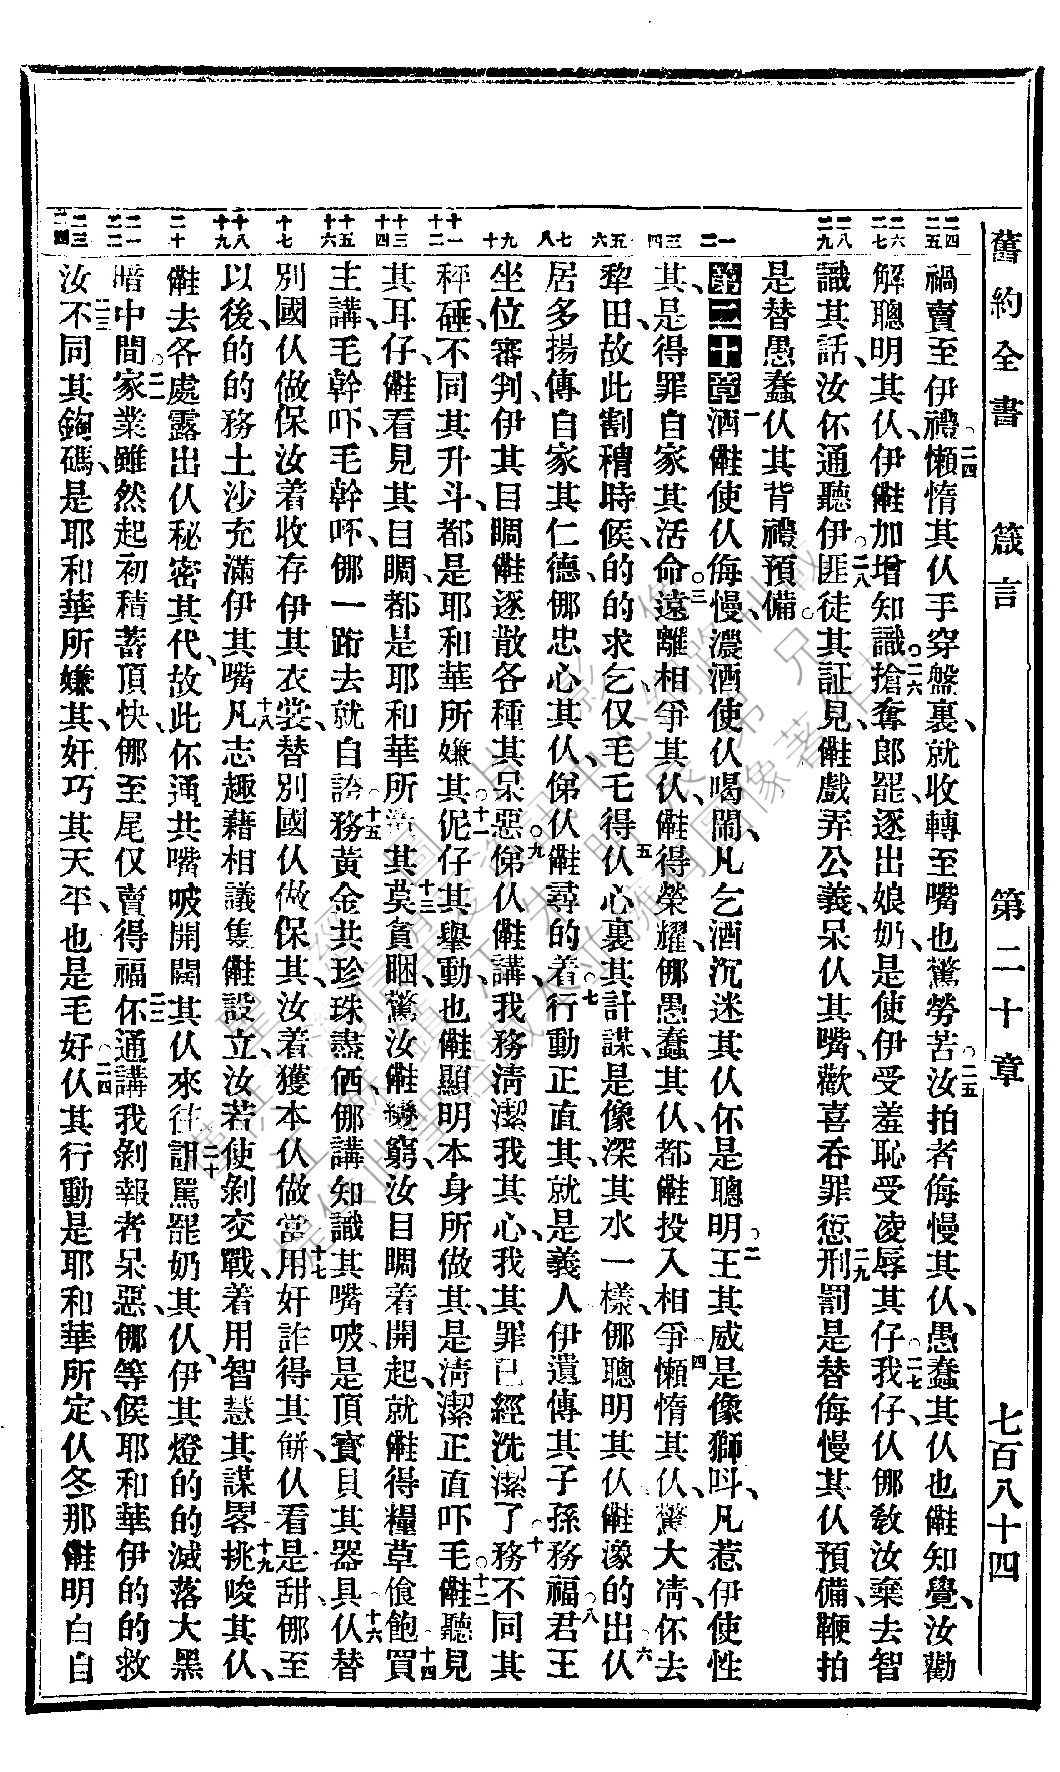 舊約全書　箴言　第二十章　七百八十四
禍賣至伊禮。二四懶惰其仈手穿盤裏、就收轉至嘴也驚勞苦。二五汝拍者侮慢其仈、愚蠢其仈也𠆧知覺、汝勸
解聰明其仈、伊𠆧加增知識。二六搶奪郎罷、逐出娘奶、是使伊受羞恥受凌辱其仔。二七我仔、仈㑚敎汝棄去智
識其話、汝伓通聽伊。二八匪徒其証見、𠆧戲弄公義、呆仈其嘴、歡喜吞罪愆。二九刑罰是替侮慢其仈預備、鞭拍
是替愚蠢仈其背禮預備。
第二十章一酒𠆧使仈侮慢、濃酒使仈喝鬧、凡乞酒沉迷其仈伓是聰明。二王其威是像獅呌、凡惹伊使性
其、是得罪自家其活命。三遠離相爭其仈、𠆧得榮耀、㑚愚蠢其仈、都𠆧投入相爭。四懶惰其仈、驚大凊、伓去
犂田、故此割穧時候、的的求乞、仅毛乇得。五仈心裏其計謀、是像深其水一樣、㑚聰明其仈𠆧濠的出。六仈
居多揚傳自家其仁德、㑚忠心其仈、俤仈𠆧尋的着。七行動正直其、就是義人、伊遺傳其子孫務福。八君王
坐位審判、伊其目睭𠆧逐散各種其呆惡。九俤仈𠆧講、我務淸潔我其心、我其罪已經洗潔了。十務不同其
秤硾、不同其升斗、都是耶和華所嫌其。十一伲仔其舉動、也𠆧顯明本身所做其、是淸潔正直吓毛。十二𠆧聽見
其耳仔、𠆧看見其目睭、都是耶和華所造其。十三莫貪睏、驚汝𠆧變窮、汝目睭着開起、就𠆧得糧草食飽。十四買
主講、毛幹吓、毛幹吓、㑚一跀去、就自誇。十五務黃金共珍珠盡価、㑚講知識其嘴㖞、是頂寶貝其器具。十六仈替
別國仈做保、汝着收存伊其衣裳、替別國仈做保其、汝着獲本仈做當。十七用奸詐得其餅、仈看是甜、㑚至
以後的的務土沙充滿伊其嘴。十八凡志趣藉相議隻𠆧設立、汝若使剝交戰、着用智慧其謀畧。十九挑唆其仈、
𠆧去各處露出仈秘密其代、故此伓通共嘴㖞開闊其仈來往。二十詛罵罷奶其仈、伊其燈的的滅落大黑
暗中間。二一家業雖然起初積蓄頂快、㑚至尾仅賣得福。二二伓通講、我剝報者呆惡、㑚等候耶和華、伊的的救
汝。二三不同其鉤碼、是耶和華所嫌其、奸巧其天平、也是毛好。二四仈其行動是耶和華所定、仈冬那𠆧明白自